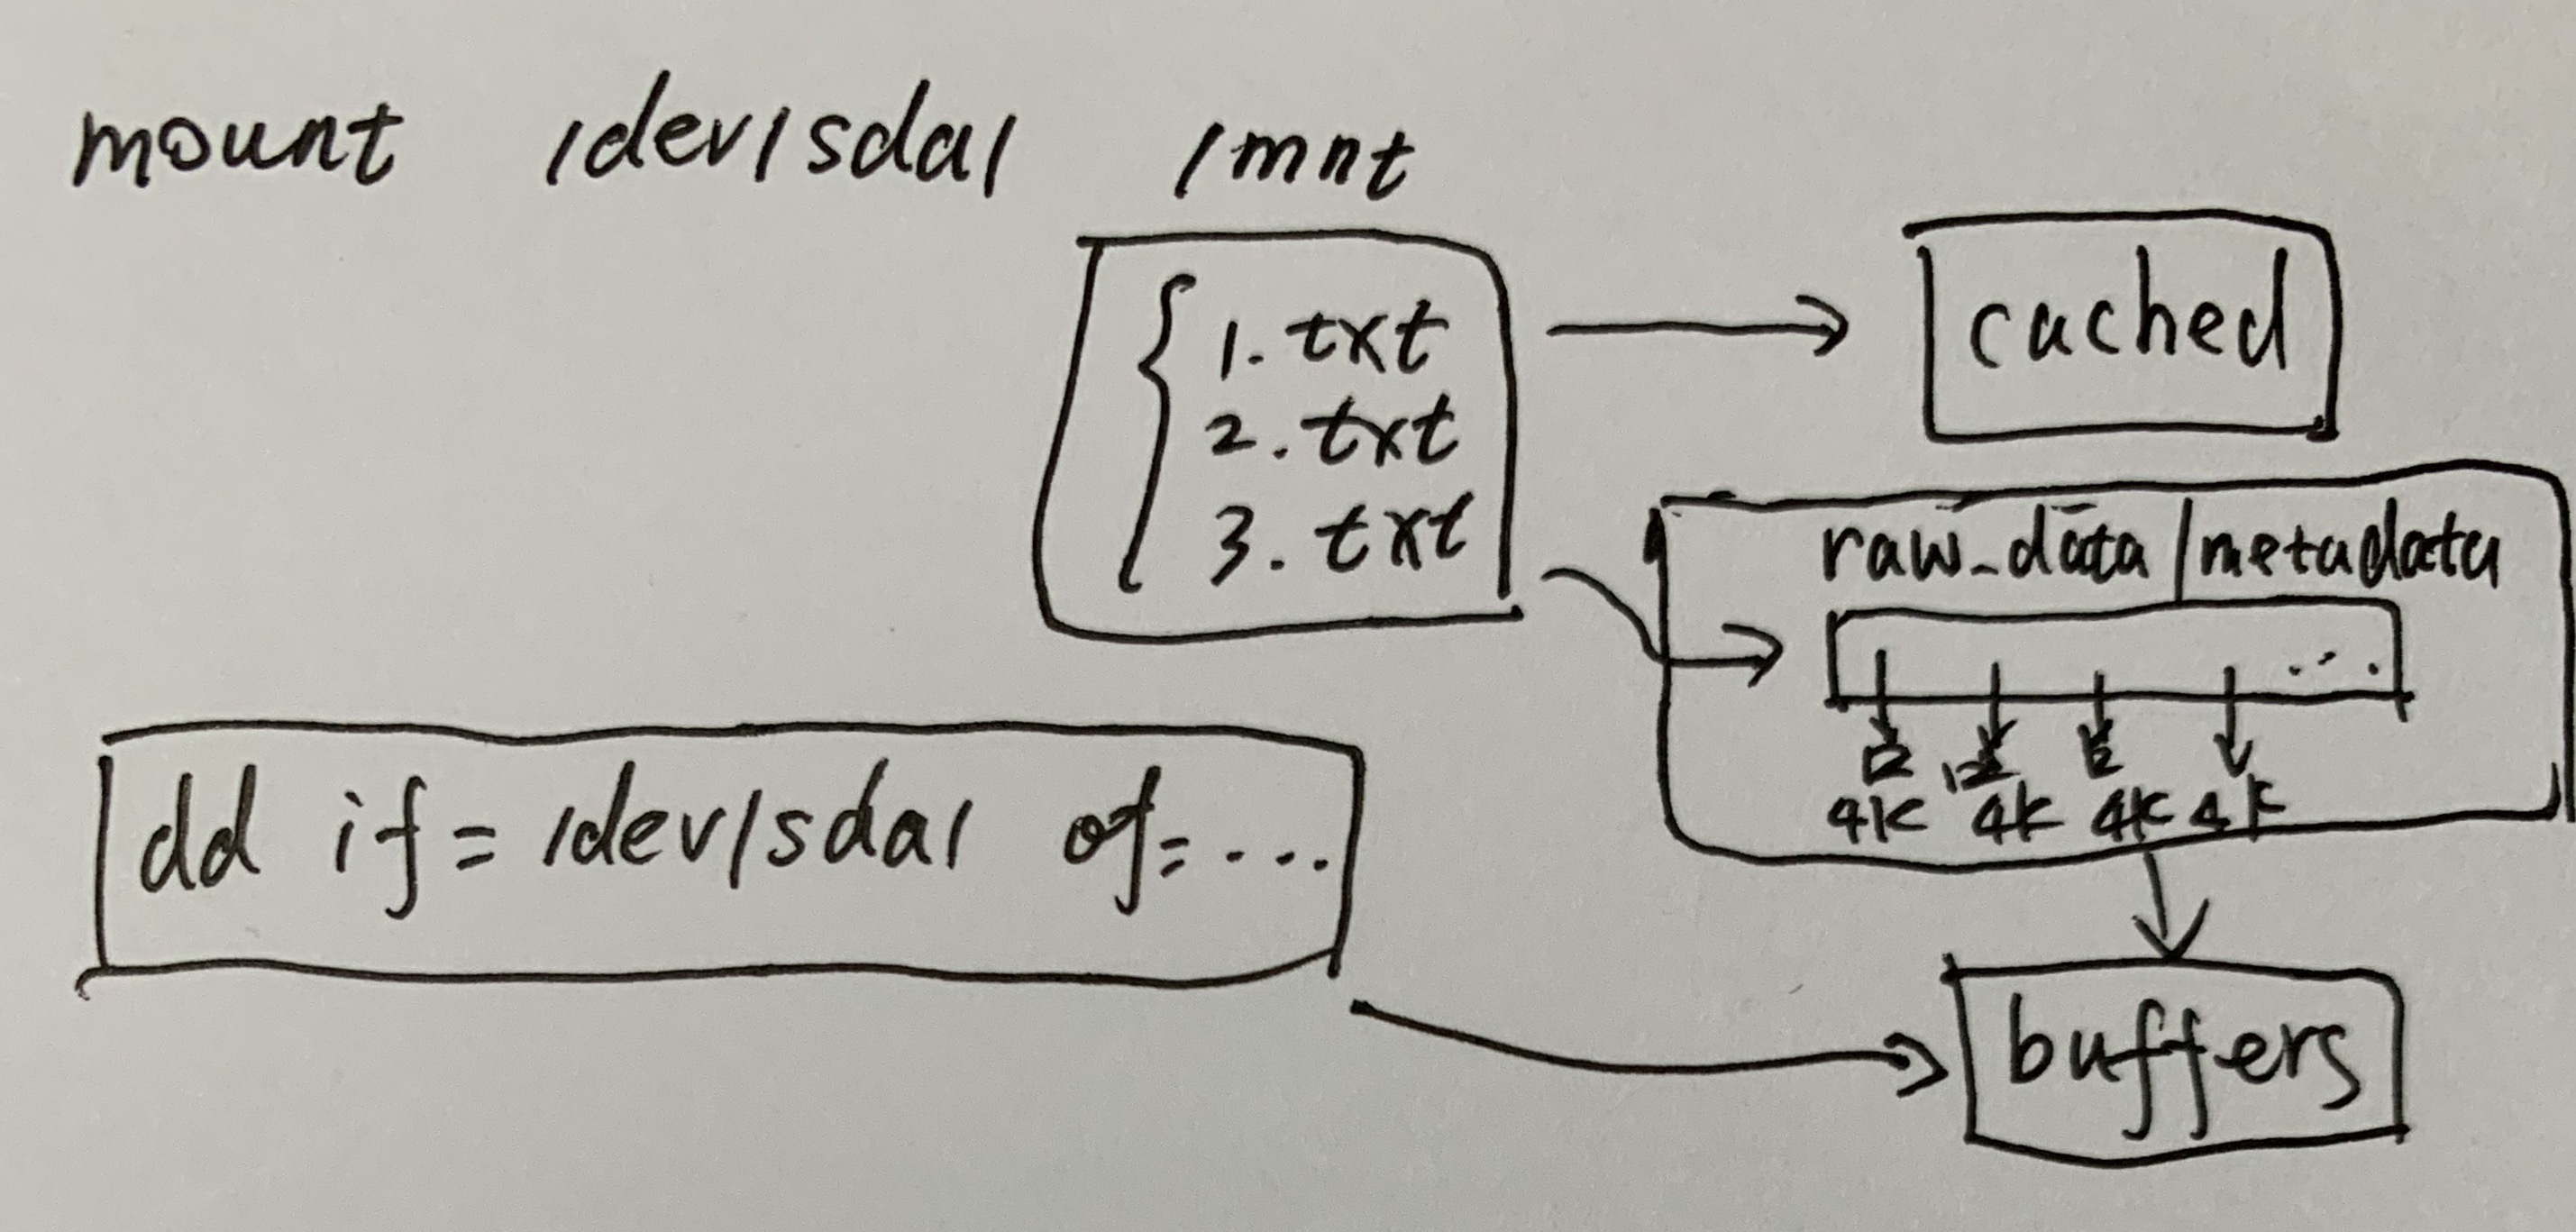 mount /dev/sda1 /mnt
1.txt
2.txt
3.txt
cached
raw_data/metadata
...
4K 4K 4K 4K
dd if=/dev/sda1 of=...
buffers